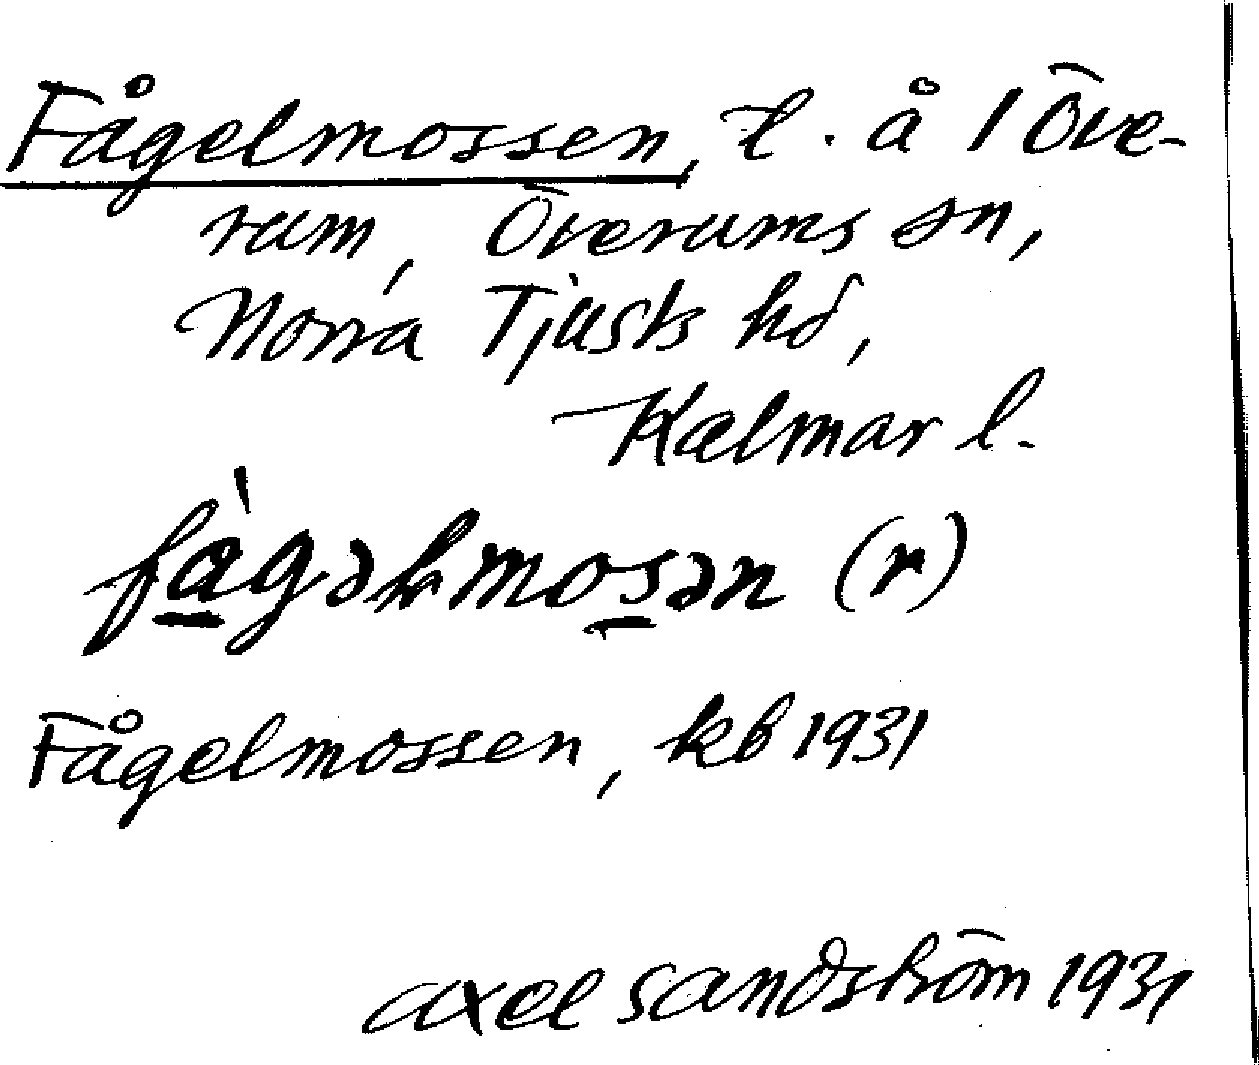 Fågelmossen, t. å 1 Öve-
rum, Överums sn,
Norra Tjusts hd,
Kalmar l.
fàgəɫmosən (r)
Fågelmossen, kb 1931
Axel Sandström 1931